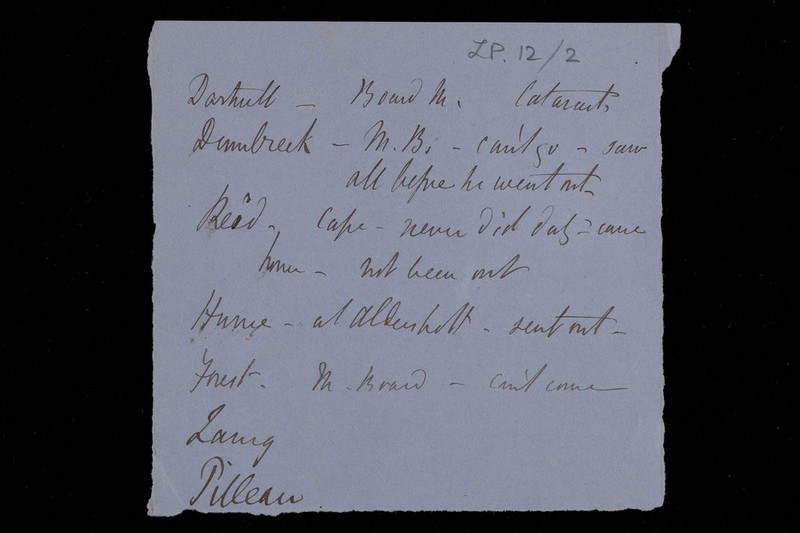 LP. 12/2
Dartnell — Board M. Cataracts
Dumbreck — M.B. - can't go - saw
all before he went out
Read - Cape - never did duty - came
home - not been out
Hume - at Aldershott - sent out -
Forest - M. Board - can't come
Laing
Pilleau